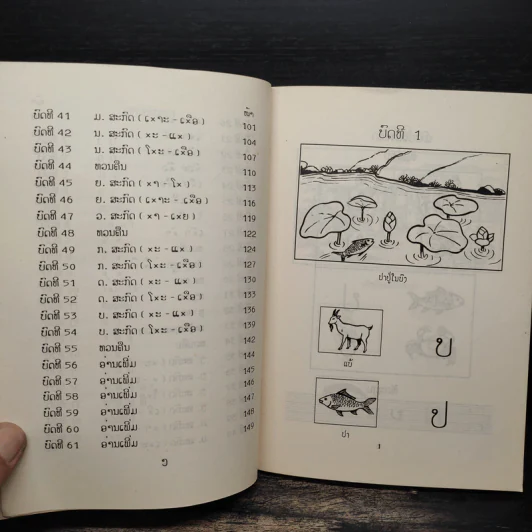 ໜ້າ
ບົດທີ 41 ມ. ສະກົດ ( ເxາະ - ເxືອ ) 101
ບົດທີ 42 ນ. ສະກົດ ( xະ - ແx ) 104
ບົດທີ 43 ນ. ສະກົດ ( ໂxະ - ເxືອ ) 107
ບົດທີ 44 ທວນຄືນ 110
ບົດທີ 45 ຍ. ສະກົດ ( xາ - ໂx ) 113
ບົດທີ 46 ຍ. ສະກົດ ( ເxາະ - ເxືອ ) 116
ບົດທີ 47 ວ. ສະກົດ ( xາ - ເxຍ ) 119
ບົດທີ 48 ທວນຄືນ 122
ບົດທີ 49 ກ. ສະກົດ ( xະ - ແx ) 124
ບົດທີ 50 ກ. ສະກົດ ( ໂxະ - ເxືອ ) 127
ບົດທີ 51 ດ. ສະກົດ ( xະ - ແx ) 130
ບົດທີ 52 ດ. ສະກົດ ( ໂxະ - ເxືອ ) 133
ບົດທີ 53 ບ. ສະກົດ ( xະ - ແx ) 136
ບົດທີ 54 ບ. ສະກົດ ( ໂxະ - ເxືອ ) 139
ບົດທີ 55 ທວນຄືນ 142
ບົດທີ 56 ອ່ານເພີ່ມ 144
ບົດທີ 57 ອ່ານເພີ່ມ 145
ບົດທີ 58 ອ່ານເພີ່ມ 146
ບົດທີ 59 ອ່ານເພີ່ມ 147
ບົດທີ 60 ອ່ານເພີ່ມ 148
ບົດທີ 61 ອ່ານເພີ່ມ 149
ບົດທີ 1
ປາຢູ່ໃນບຶງ
ແບ້
ບ
ປາ
ປ
1